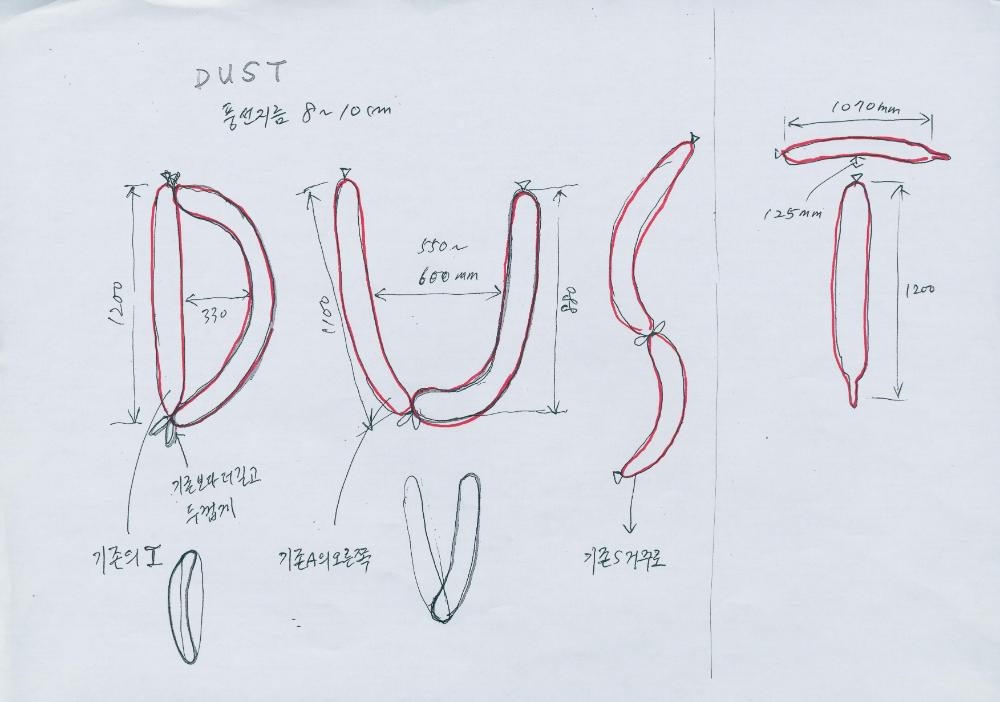 DUST
풍선지름 8~10cm
1200
330
1100
550~
600mm
880
1070mm
125mm
1200
기존보다 더 길고
두껍게
기존의 I
기존A의 오른쪽
기존S 거꾸로